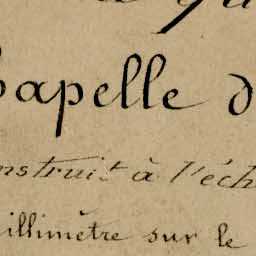 hapelle d
nstruit à l'éch
illimètre sur le